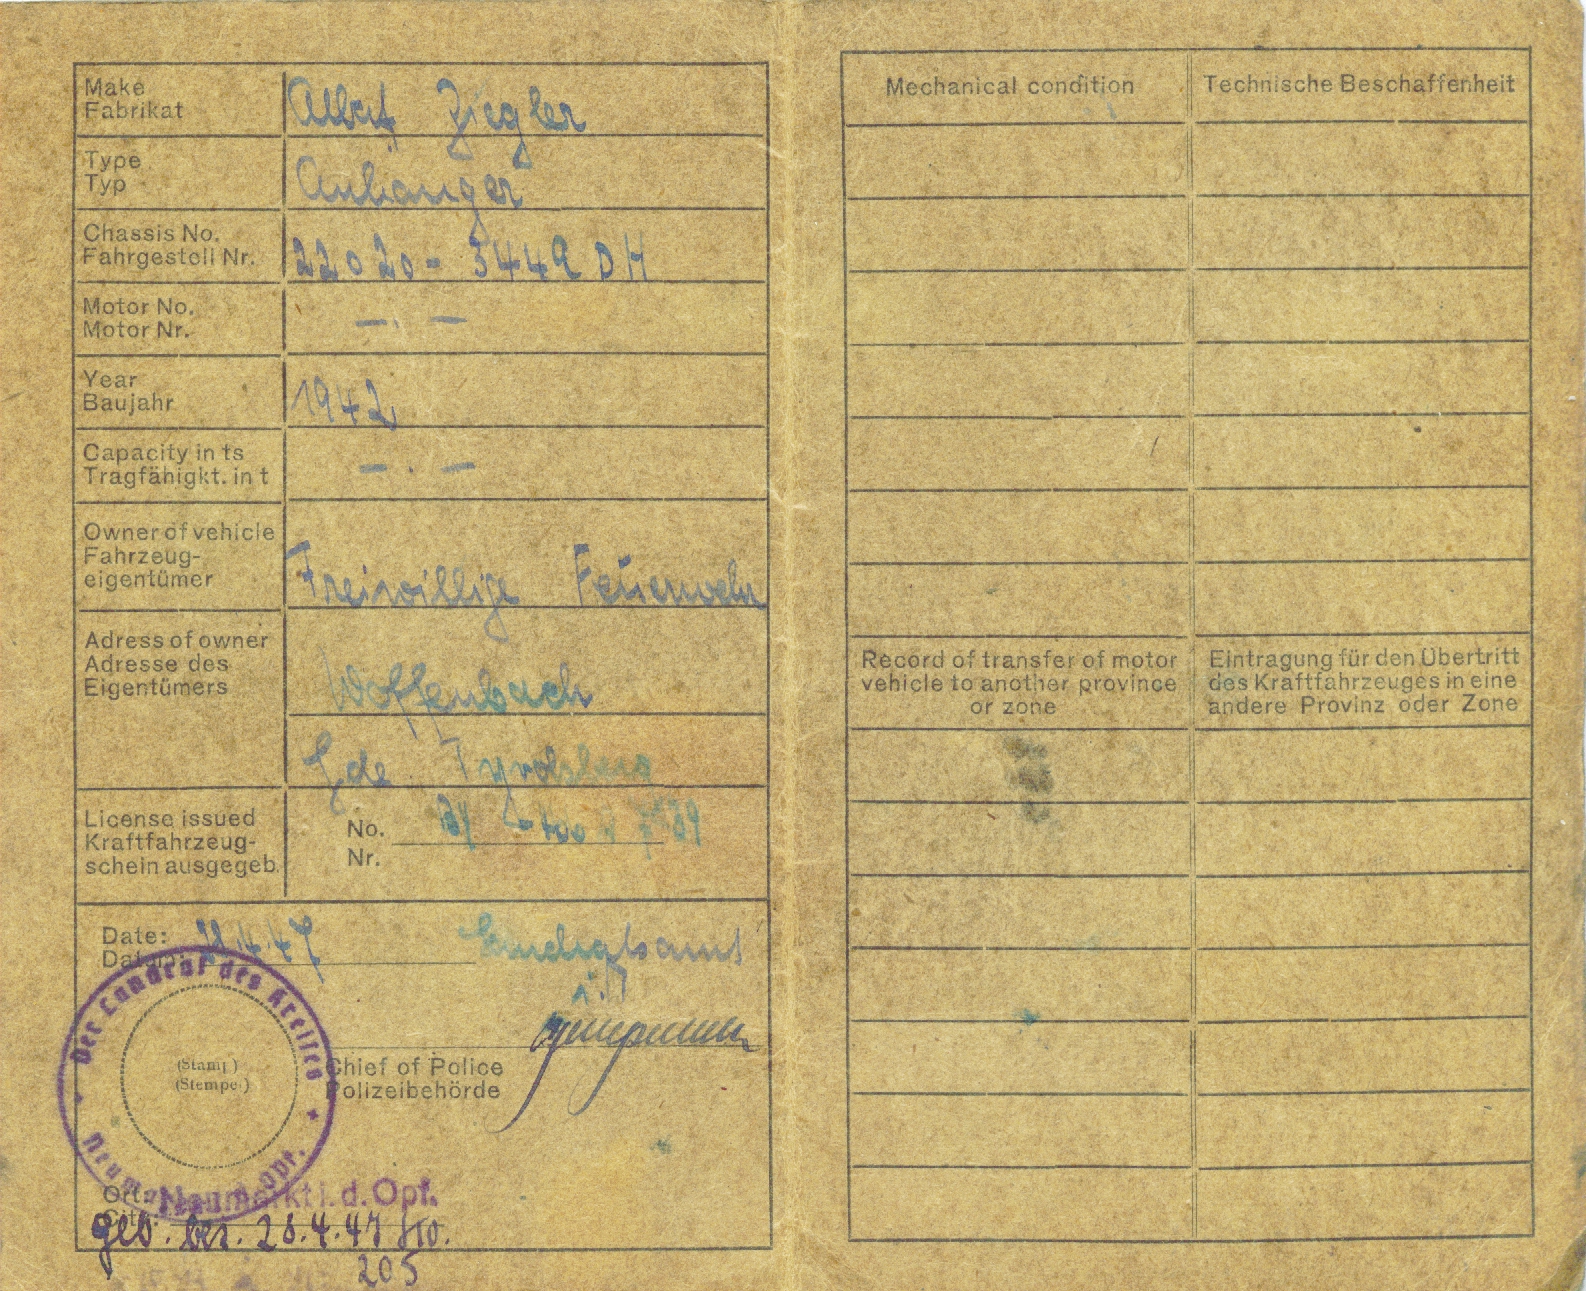 Make
Fabrikat
Albert Ziegler
Type
Typ
Anhänger
Chassis No.
Fahrgestell Nr.
22020 - 3449 DH
Motor No.
Motor Nr.
—. —
Year
Baujahr
1942
Capacity in ts
Tragfähigkt. in t
— . —
Owner of vehicle
Fahrzeug-
eigentümer
Freiwillige Feuerwehr
Adress of owner
Adresse des
Eigentümers
Woffenbach
Gde.
License issued
Kraftfahrzeug-
schein ausgegeb.
No.
Nr.
Date:
4.47
Der Landrat des Kreises
Neumarkt Opf.
(Stamp)
(Stempel)
Chief of Police
Polizeibehörde
Ort:
City:
Neumarkt i. d. Opf.
geb. bez. 28.4.47
205
Mechanical condition
Technische Beschaffenheit
Record of transfer of motor
vehicle to another province
or zone
Eintragung für den Übertritt
des Kraftfahrzeuges in eine
andere Provinz oder Zone